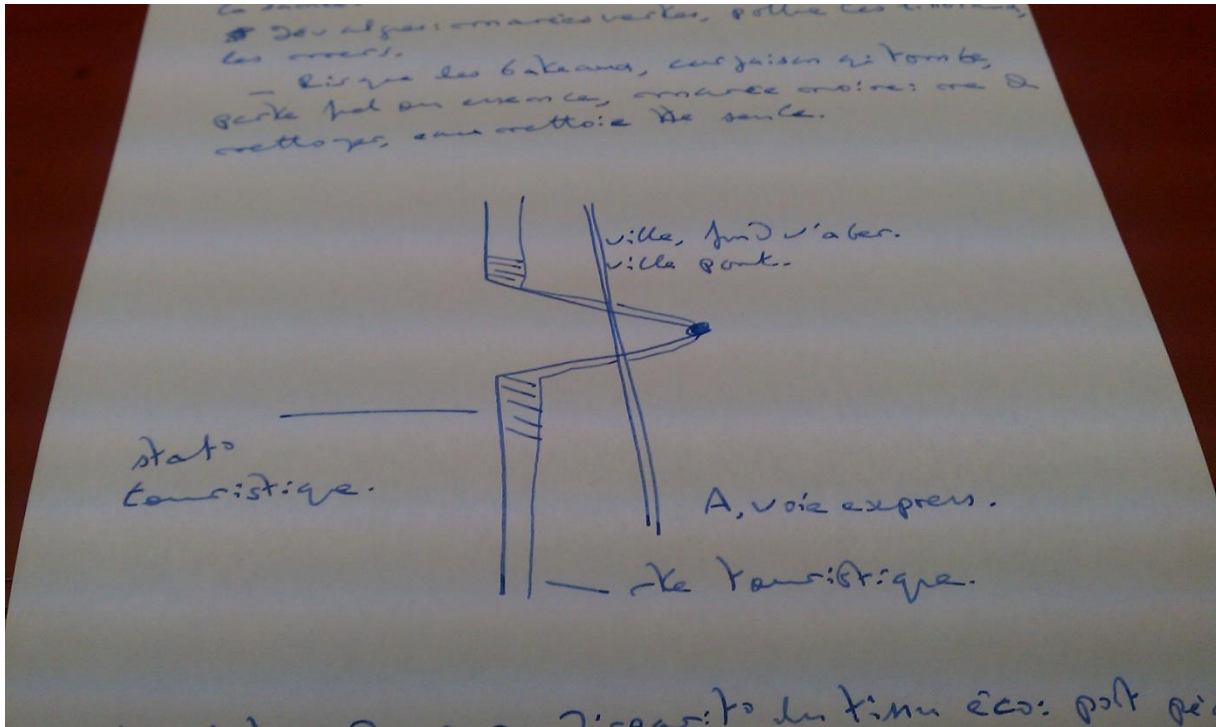 la santé.
Des algues: marées vertes, pollue les littoraux,
les mers.
– Risque les bateaux, cargaison qui tombe,
perte fuel ou essence, marée noire:
nettoyer, eau nettoie seule.
ville, fond d'aber.
ville pont.
stat°
touristique.
A, voie express.
rte touristique.
du tissu éco: port